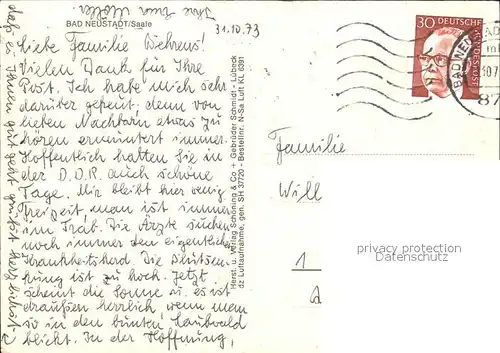 BAD NEUSTADT/Saale
31.10.73
Liebe Familie Diehrens!
Vielen Dank für Ihre
Post. Ich habe mich sehr
darüber gefreut, denn von
lieben Nachbarn etwas zu
hören ermuntert immer.
Hoffentlich hatten Sie in
der D.D.R. auch schöne
Tage. Mir bleibt hier wenig
Freizeit, man ist immer
im Trab. Die Ärzte suchen
noch immer den eigentlichen
Krankheitsherd. Die Blutsen-
kung ist zu hoch. Jetzt
scheint die Sonne u. es ist
draußen herrlich, wenn man
so in den bunten Laubwald
blickt. In der Hoffnung,
daß es Ihnen gut geht grüßt herzlichst
Ihre
Herst. u. Verlag Schöning & Co + Gebrüder Schmidt - Lübeck
dz Luftaufnahme, gen. SH 37720 - Bestellnr. N-Sa Luft KL 6391
30 DEUTSCHE
BUNDESPOST
BAD NEU
87
Familie
Will
1
privatepharmacy
Datenschutz